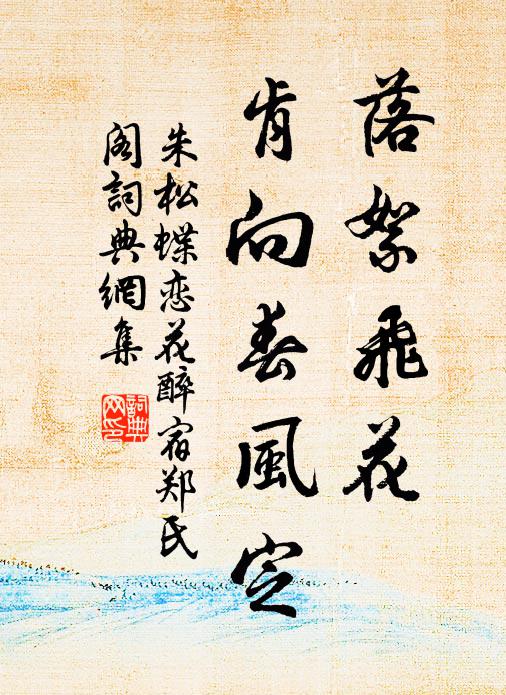 落絮飛花
肯向春風定
朱松蝶恋花醉宿郑氏
阁詞典網集
詞典
网印